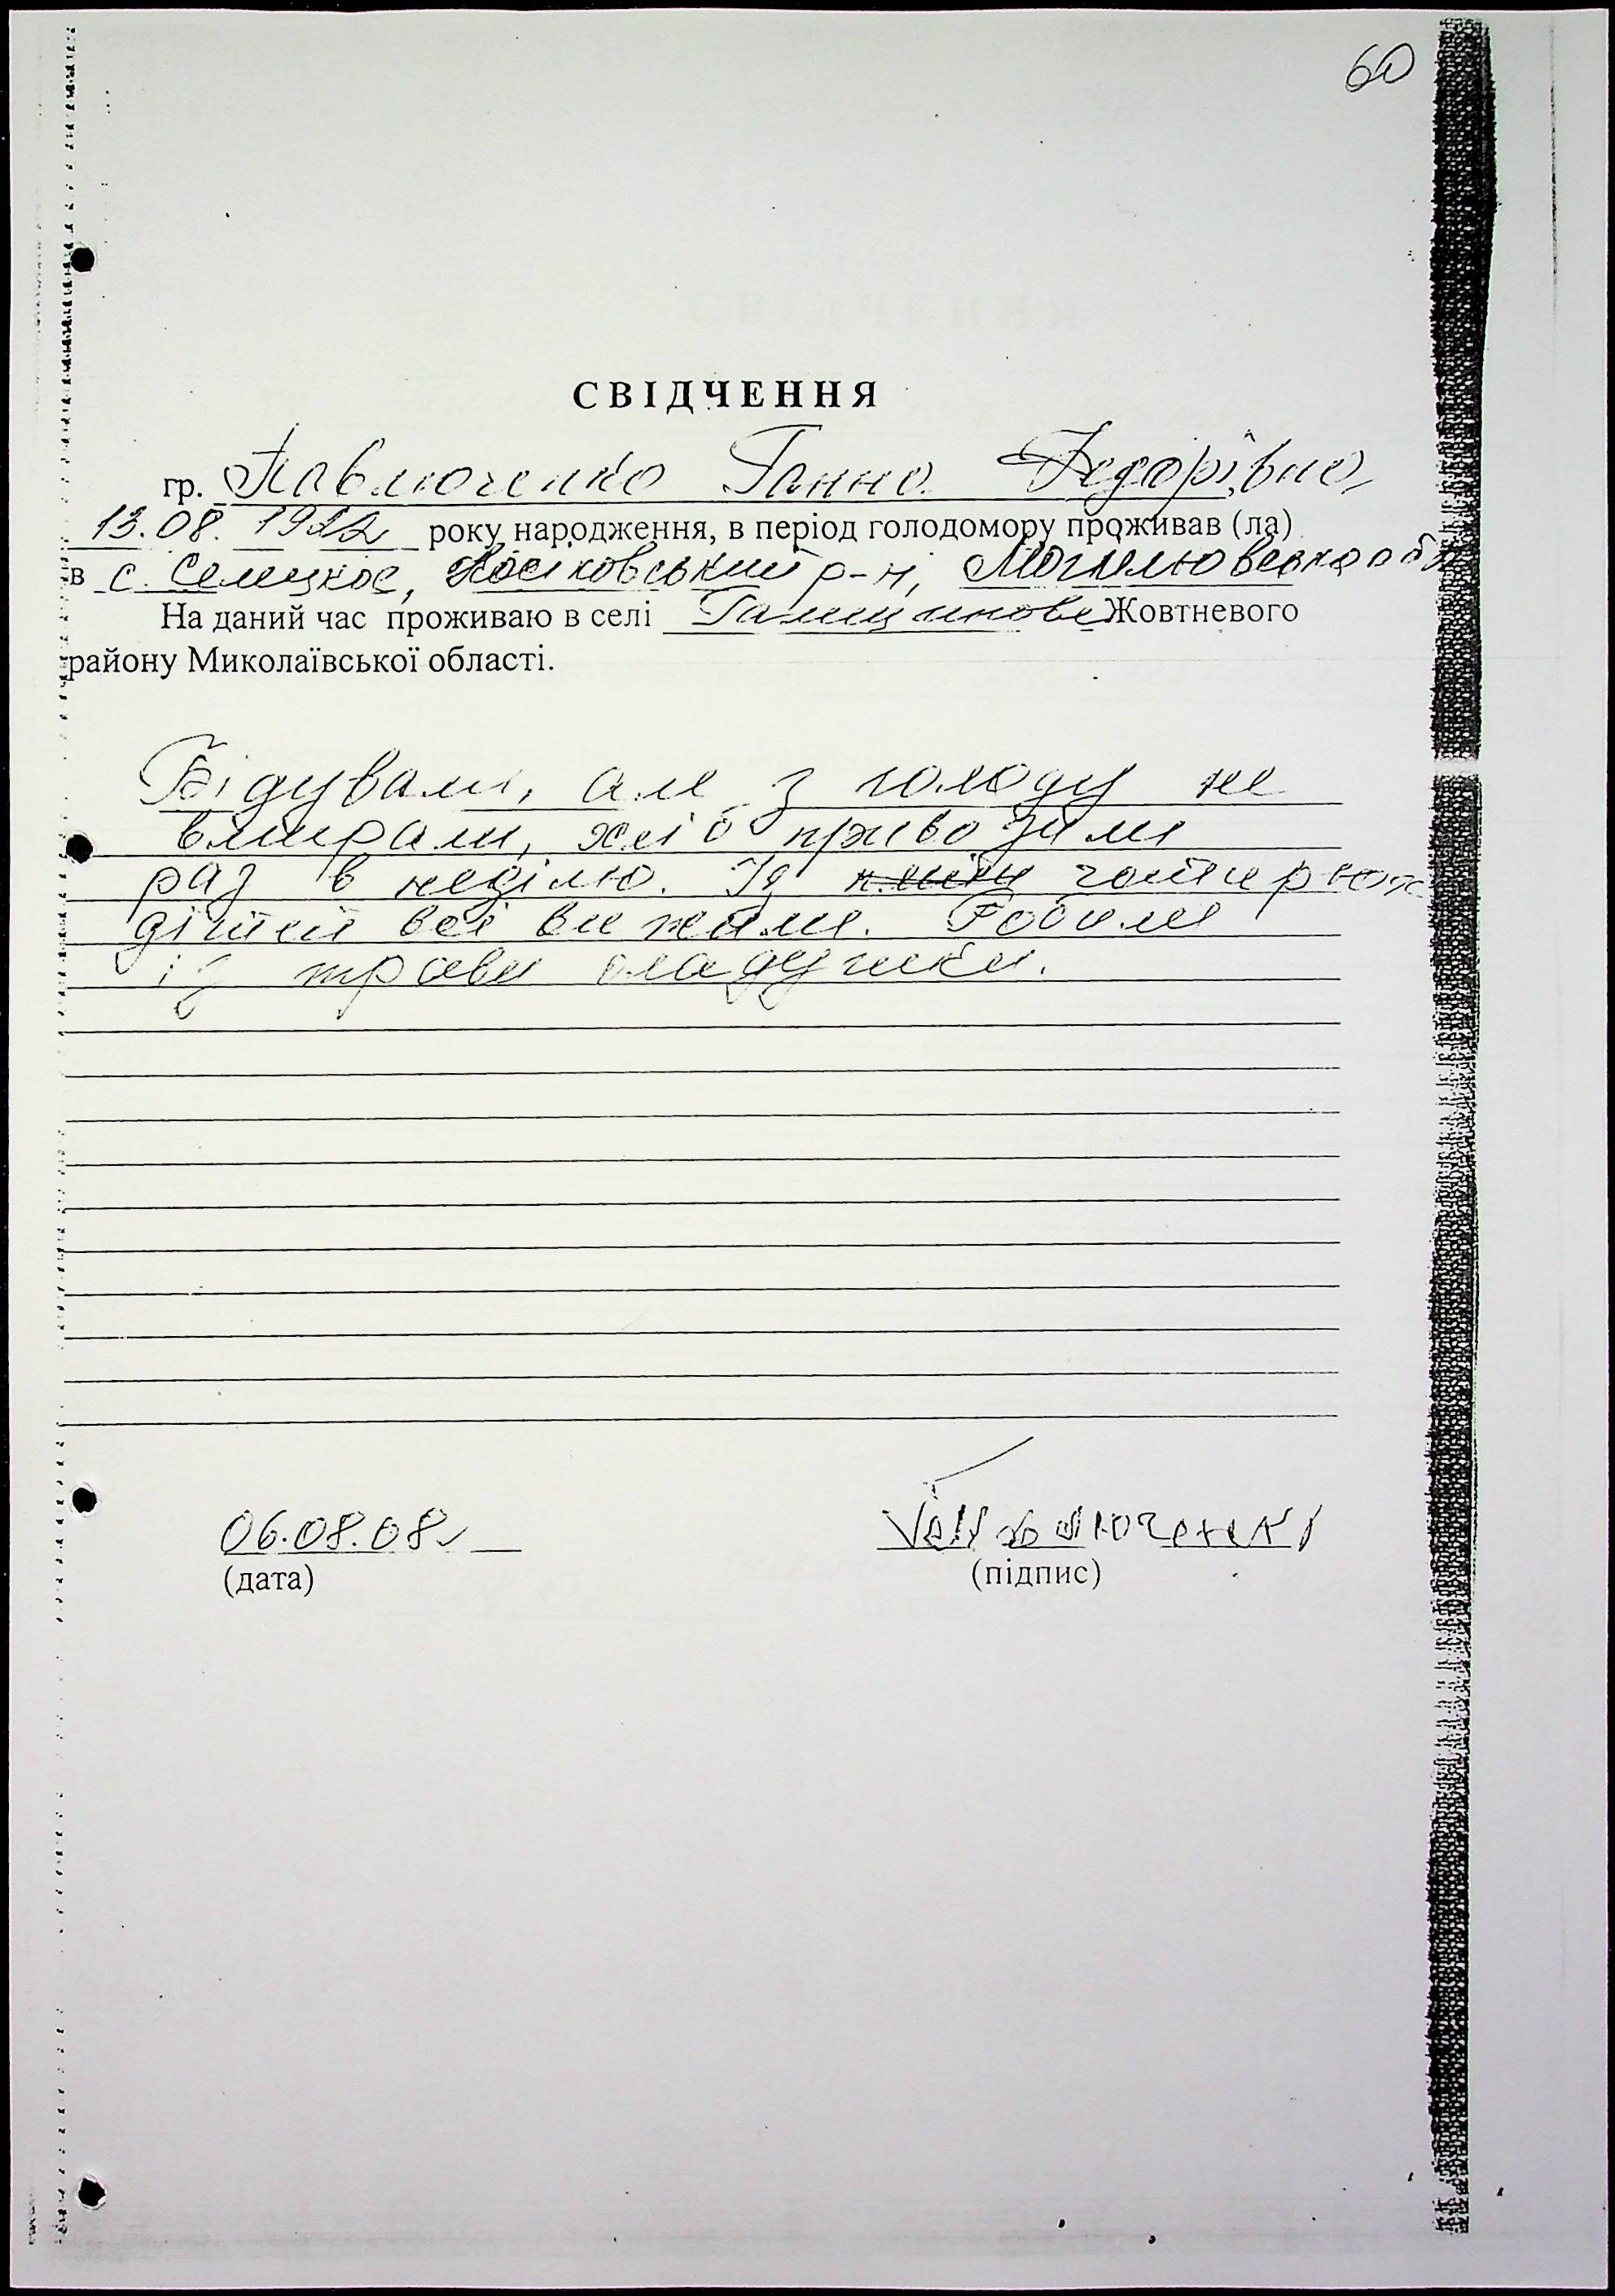 60
СВІДЧЕННЯ
гр. Павлюченко Ганна Федорівна
13.08. 1922 року народження, в період голодомору проживав (ла)
в с. Селецкое, р-н,
На даний час проживаю в селі Галицинове Жовтневого
району Миколаївської області.
Бідували, але з голоду не
вмирали, хліб привозили
раз в неділю. Із чотирьох
дітей всі вижили. Робили
із трави оладушки.
06.08.08
(дата)
(підпис)